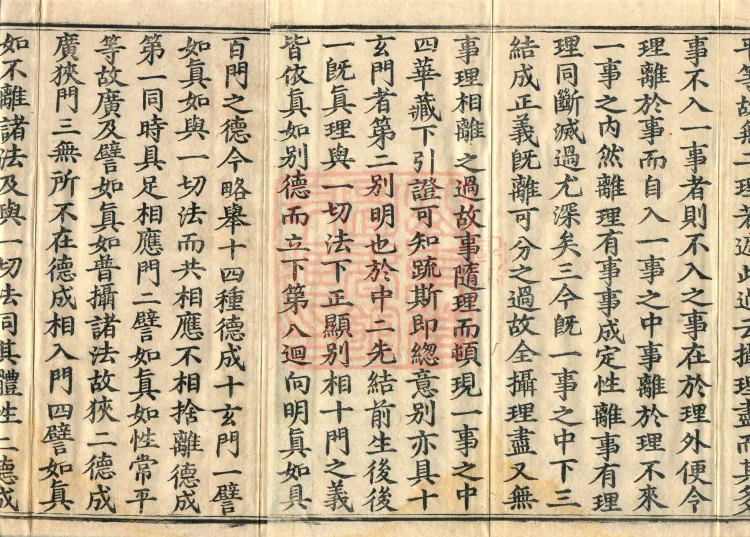 平等故無一理若近此過六攝理盡而其多
事不入一事者則不入之事在於理外便令
理離於事而自入一事之中事離於理不來
一事之内然離理有事事成定性離事有理
理同斷滅過尤深矣三今旣一事之中下三
結成正義旣離可分之過故全攝理盡又無
事理相離之過故事隨理而頓現一事之中
四華藏下引證可知疏斯即緫意別亦具十
玄門者第二別明也於中二先結前生後後
一旣眞理與一切法下正顯別相十門之義
皆依眞如別德而立下第八迴向明眞如具
百門之德今略舉十四種德成十玄門一譬
如眞如與一切法而共相應不相捨離德成
第一同時具足相應門二譬如眞如性常平
等故廣及譬如眞如普攝諸法故狹二德成
廣狹門三無所不在德成相入門四譬如眞
如不離諸法及與一切法同其體性二德成